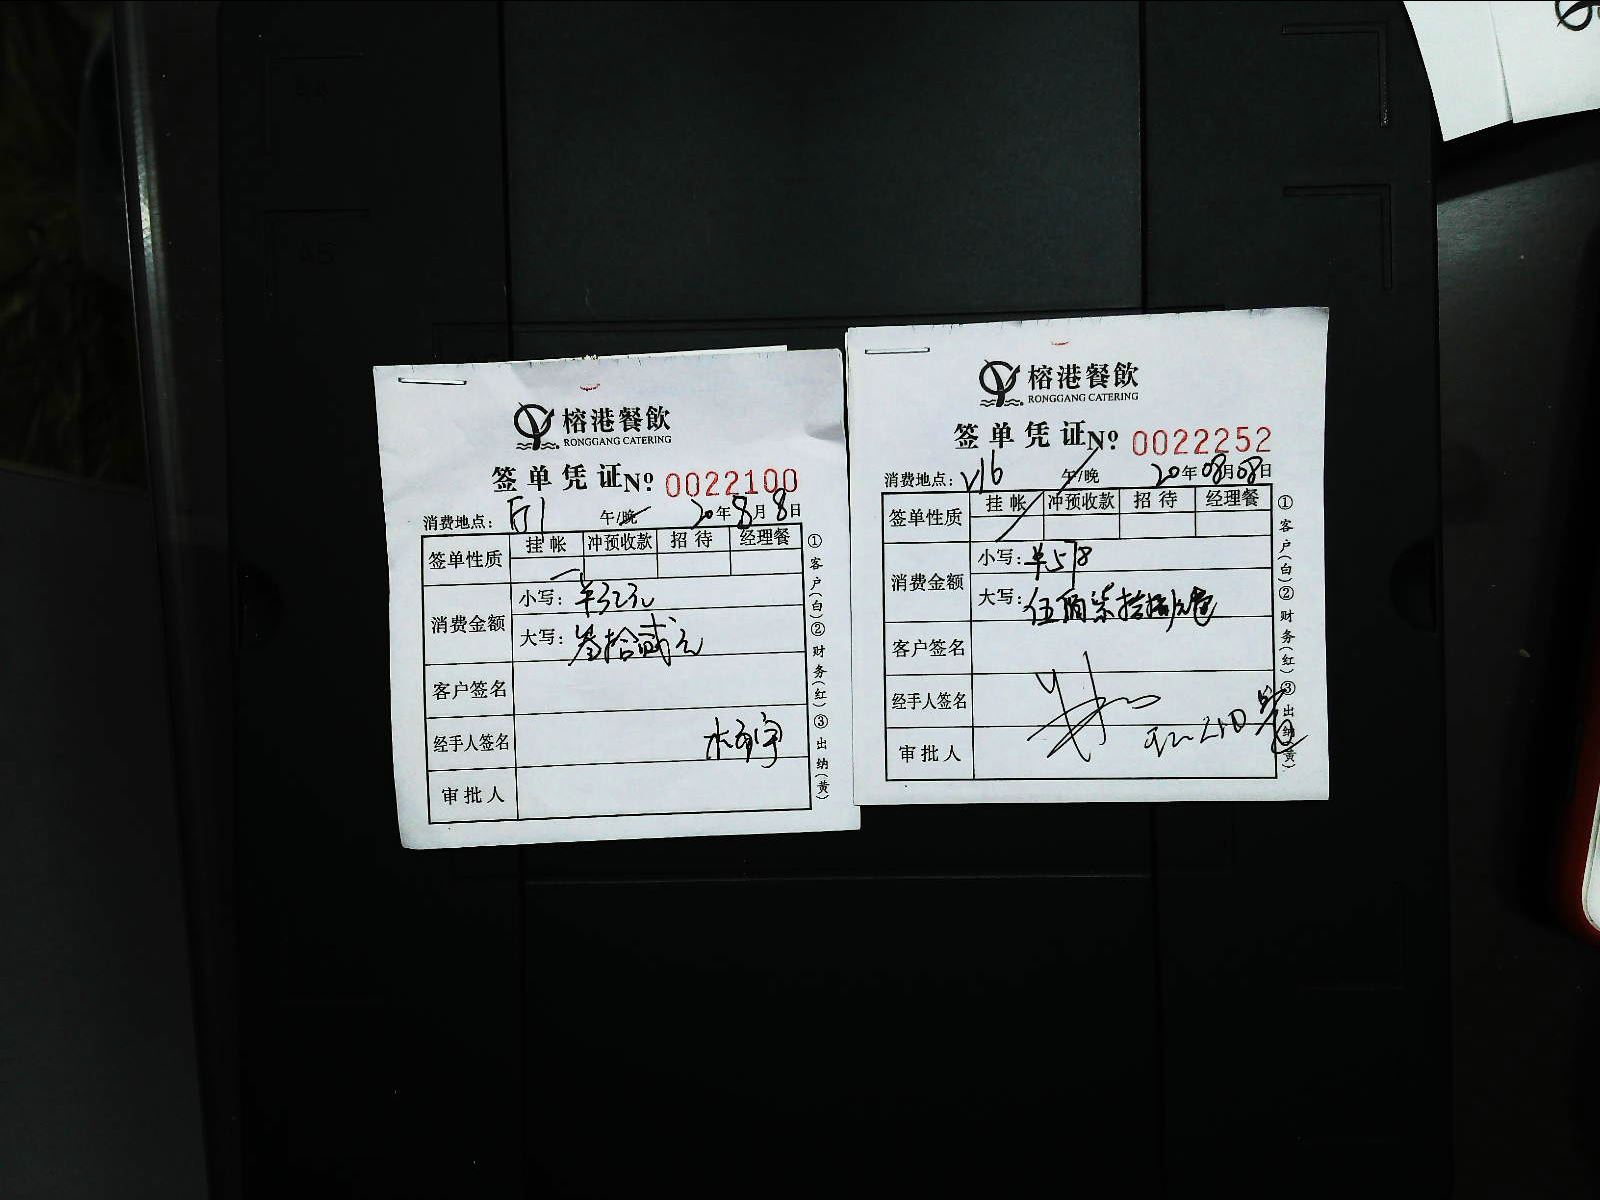 榕港餐飲
RONGGANG CATERING
签单凭证 Nº 0022100
消费地点： 午/晚 20年8月8日
签单性质 挂帐 冲预收款 招待 经理餐
消费金额 小写：¥32元
大写：叁拾贰元
客户签名
经手人签名
审批人
①客户(白)②财务(红)③出纳(黄)
榕港餐飲
RONGGANG CATERING
签单凭证 Nº 0022252
消费地点：V16 午/晚 20年08月08日
签单性质 挂帐 冲预收款 招待 经理餐
消费金额 小写：¥578
大写：伍佰柒拾捌元
客户签名
经手人签名
审批人
①客户(白)②财务(红)③出纳(黄)
A5